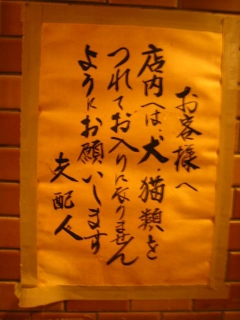 お客様へ
店内へは、犬・猫類を
つれてお入りになりません
ようにお願いします
支配人